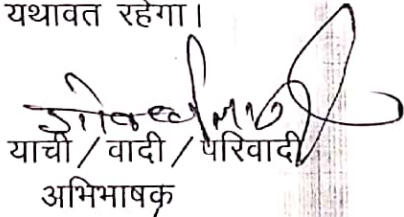 यथावत रहेगा।
याची / वादी / परिवादी
अभिभाषक